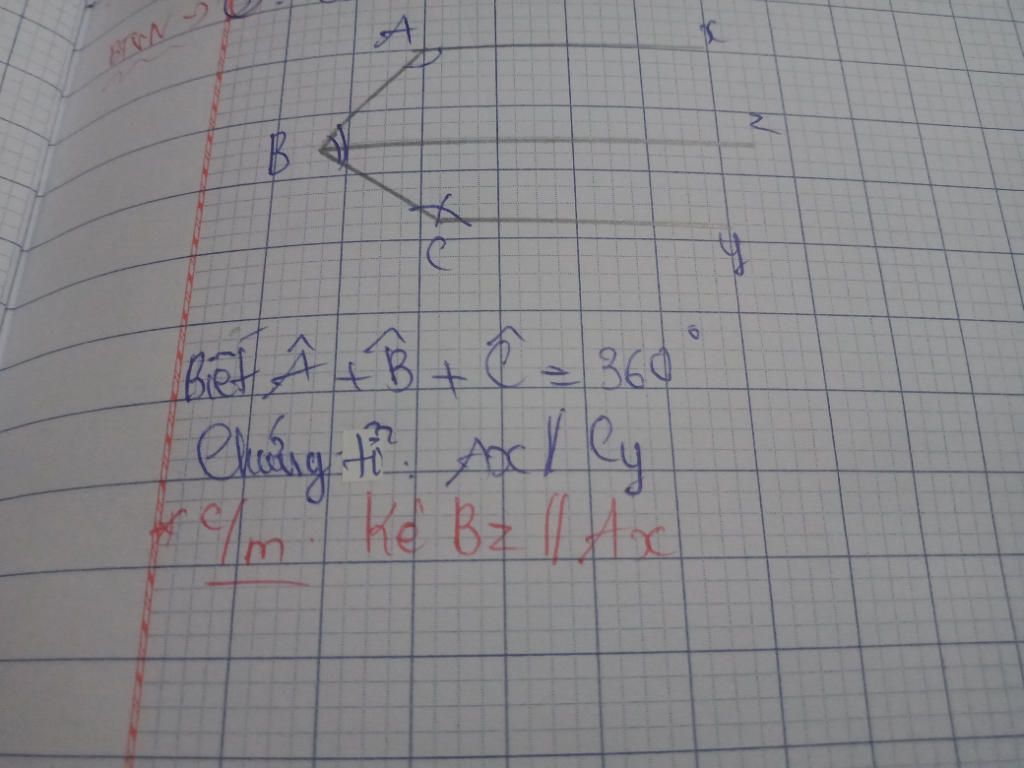 A x
B z
C y
Biết Â + B̂ + Ĉ = 360°
Chứng tỏ: Ax // Cy
* c/m. Kẻ Bz // Ax